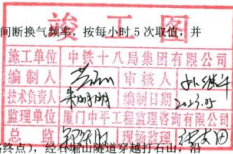 间断换气频率，按每小时5次取值，并
竣工图
施工单位 中铁十八局集团有限公司
编制人 审核人
技术负责人 编制日期 2023.05
监理单位 厦门中平工程监理咨询有限公司
总监 现场监理
终点），经石鼓山隧道穿越打石山，沿